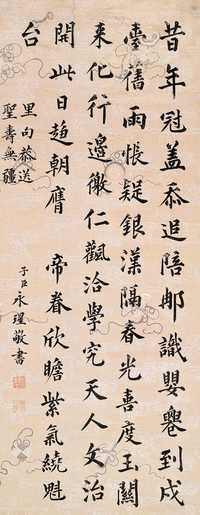 昔年冠蓋忝追陪識嬰到戍
臺舊雨悵疑銀漢隔春光喜度玉關
來化行邊徼仁觀洽學究天人文治
開此日趨朝膺 帝眷欣瞻紫氣繞魁
台
里句恭送
聖壽無疆
子臣永瑆敬書